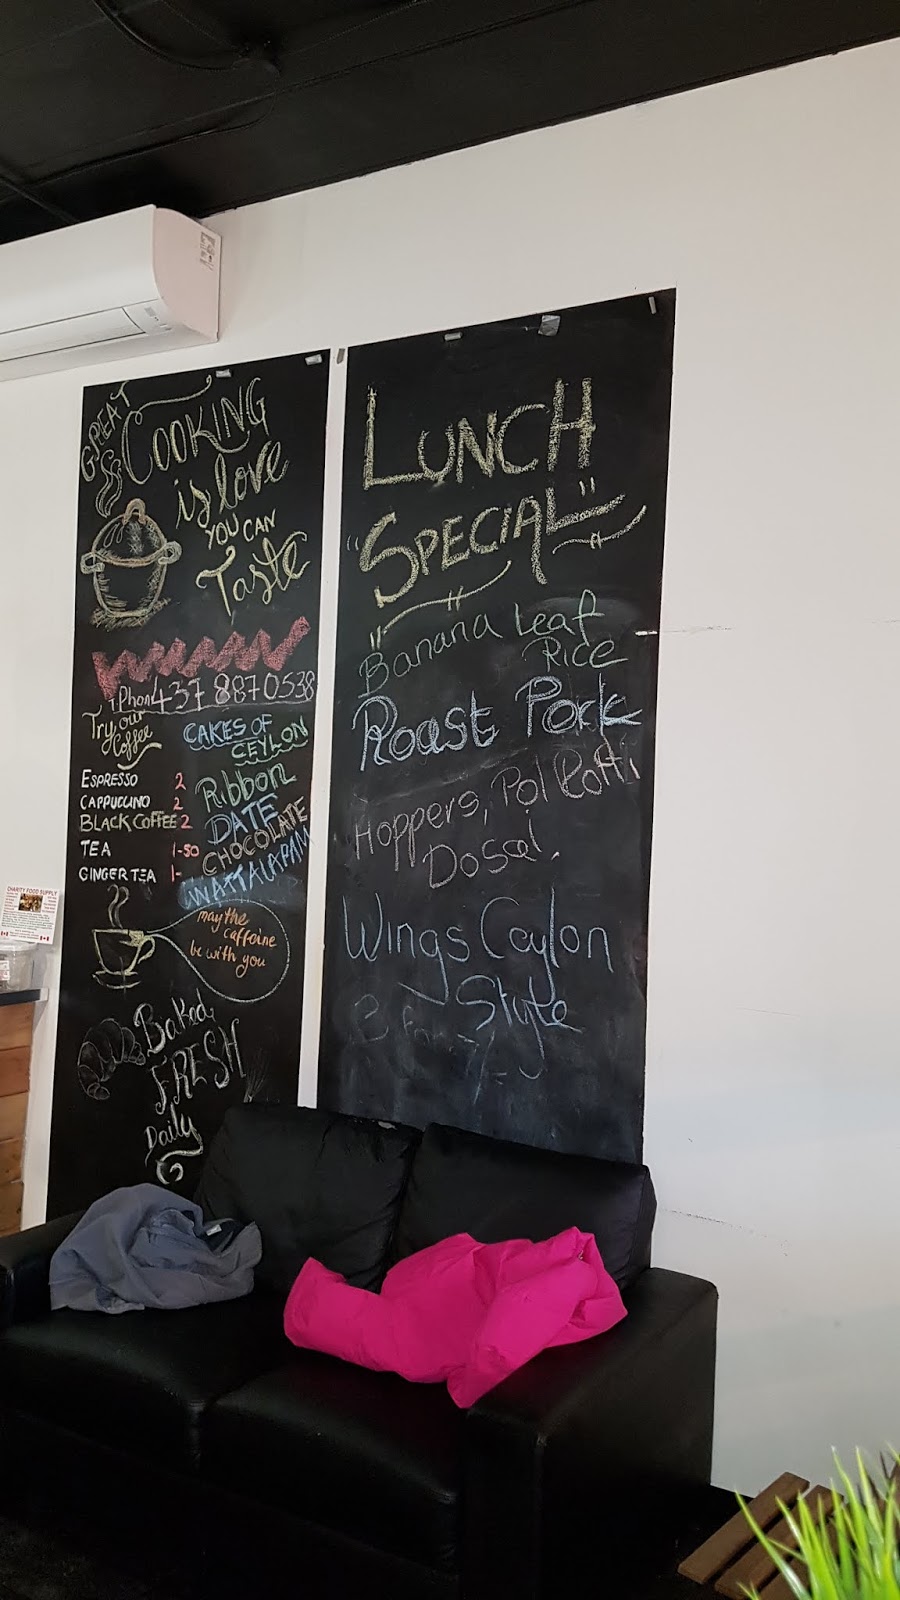 GREAT
COOKING
is love
YOU CAN
Taste
T.Phon 437 8870538
Try our
Coffee
ESPRESSO 2
CAPPUCCINO 2
BLACK COFFEE 2
TEA 1-50
GINGER TEA 1-
CAKES OF
CEYLON
Ribbon
DATE
CHOCOLATE
WATTALAPAM
may the
caffeine
be with you
Baked
FRESH
Daily
LUNCH
"SPECIAL"
Banana Leaf
Rice
Roast Pork
Hoppers, Pol Rotti
Dosai.
Wings Ceylon
Style
CHARITY FOOD SUPPLY